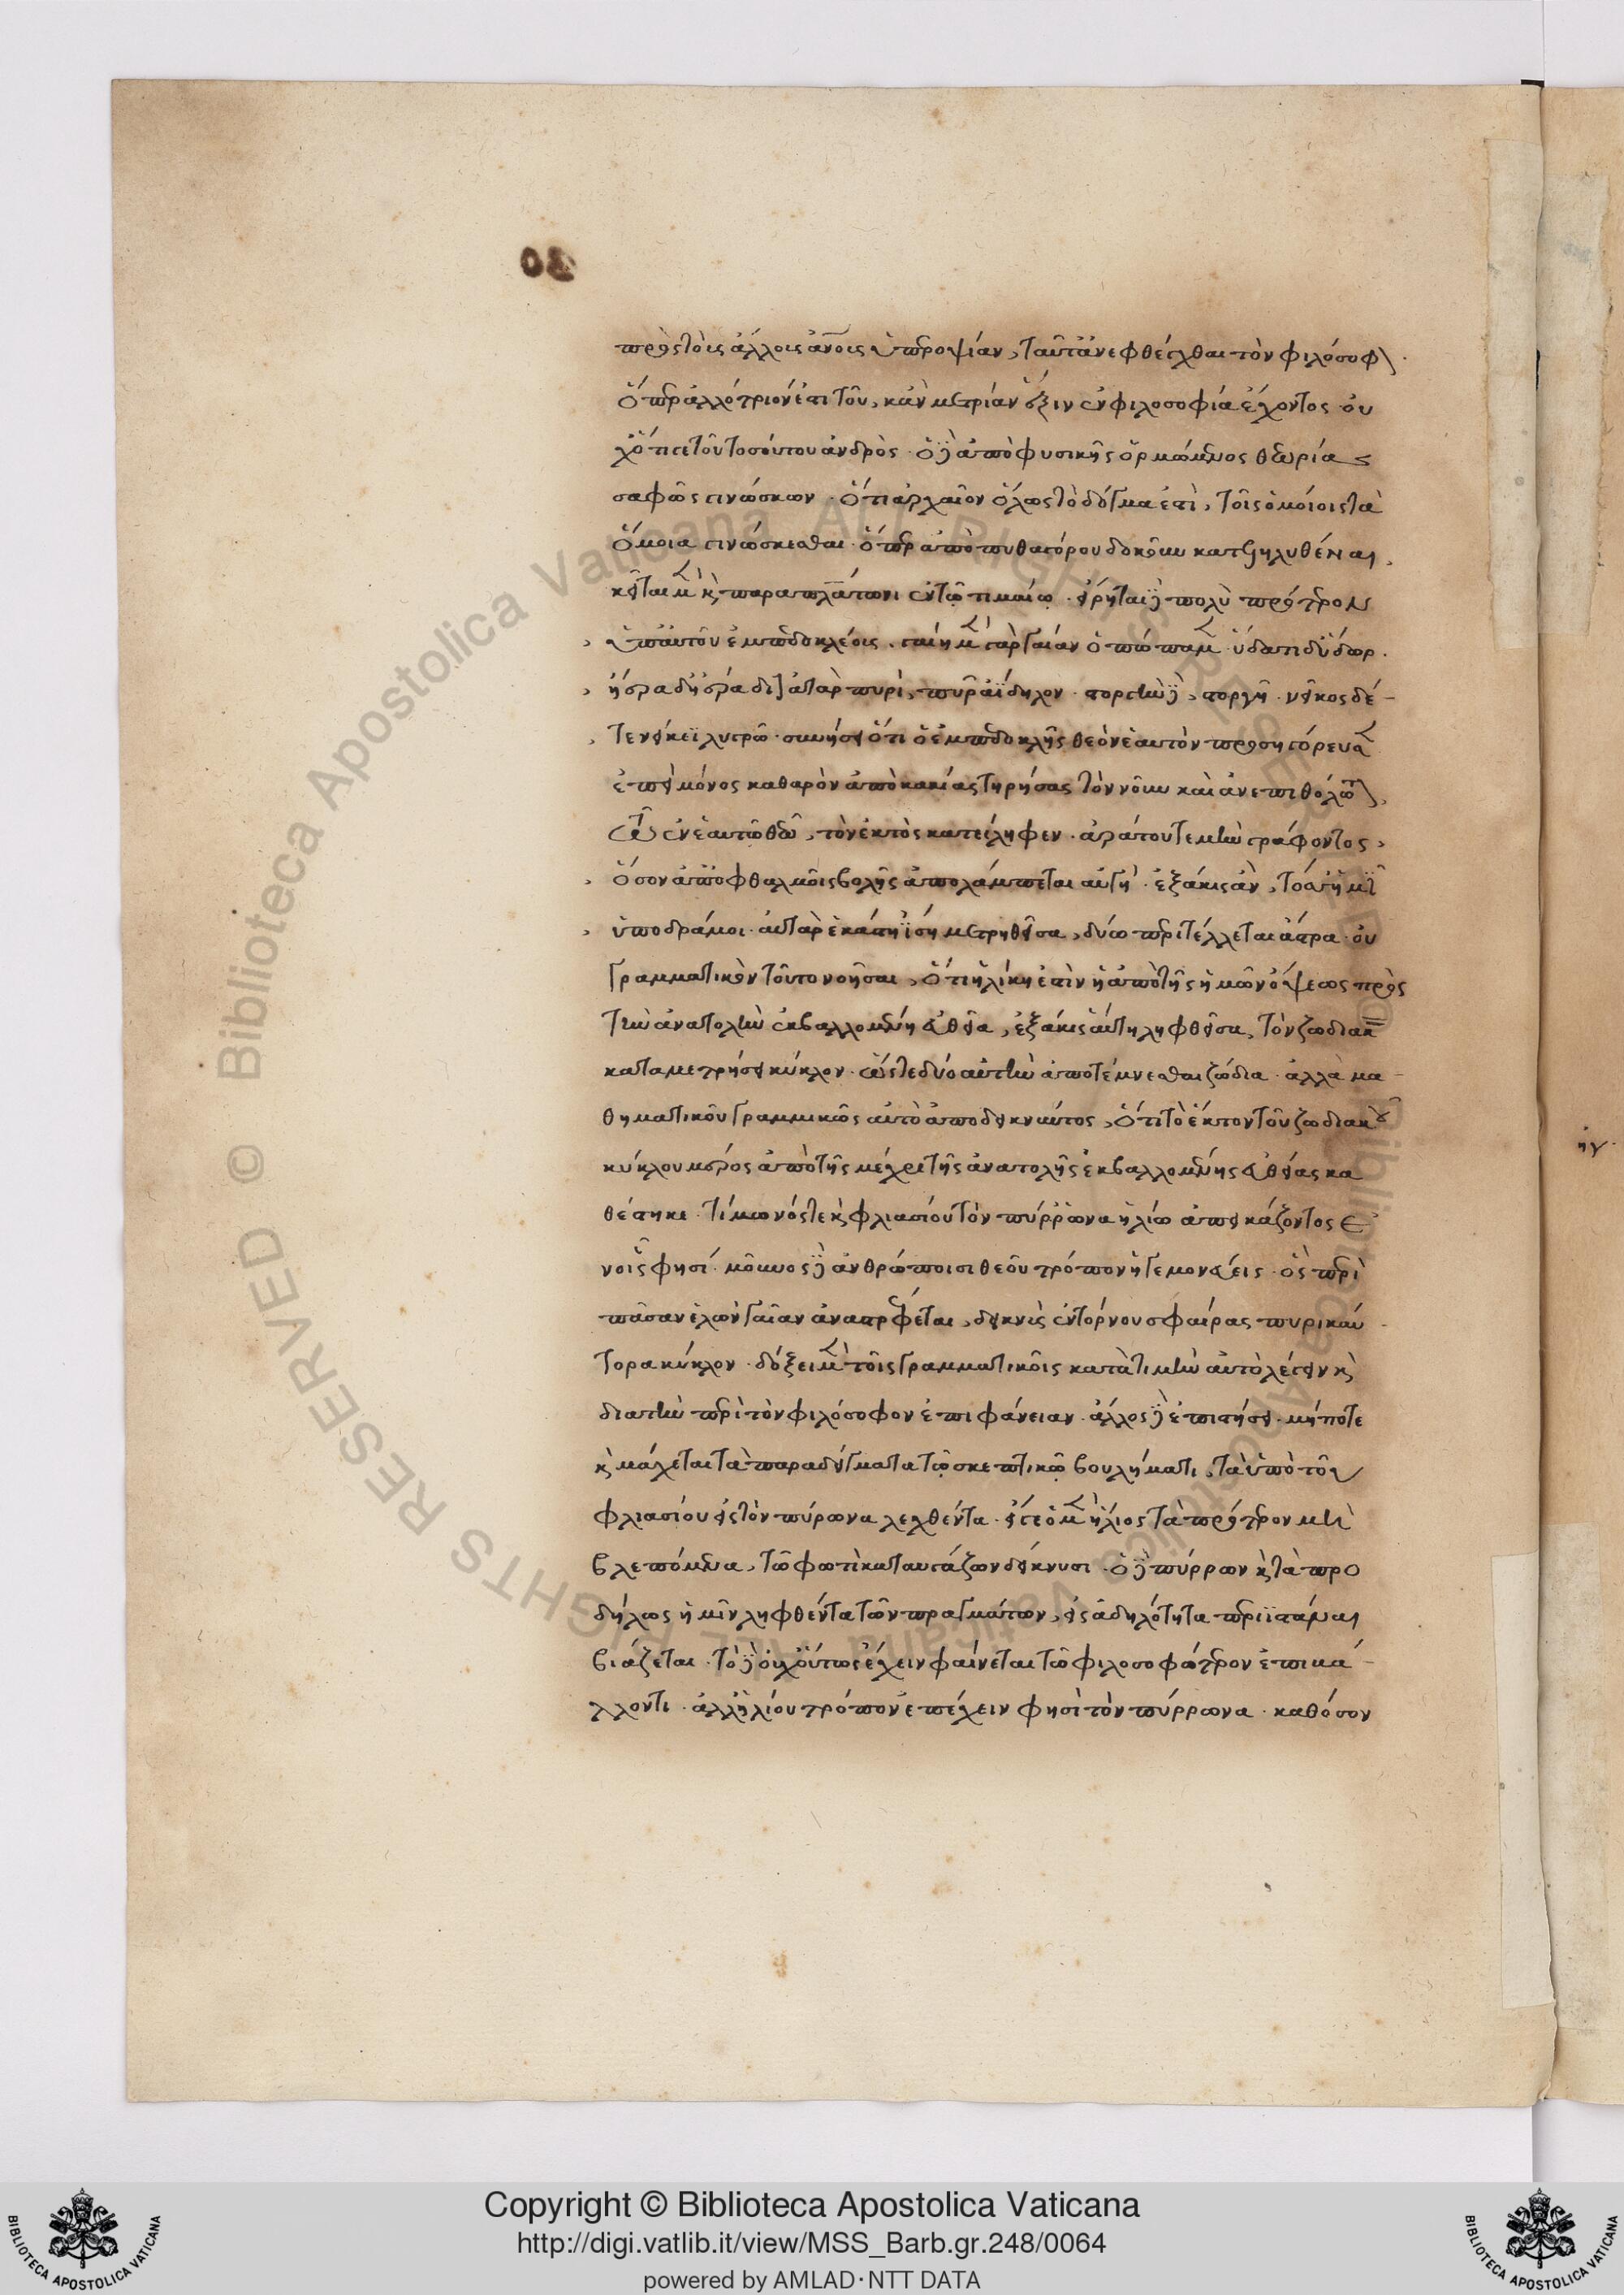 πρὸς τοῖς ἄλλοις ἀνοις ὑπεροψίαν, ταῦτ' ἀνεφθέγχθαι τὸν φιλόσοφ
ὅπερ ἀλλότριόν ἐστι τοῦ, κἂν μετρίαν ἕξιν ἐν φιλοσοφία ἔχοντος· οὐ
χ' ὅτι γε τοῦ τοσούτου ἀνδρὸς· ὁ δὲ ἀπὸ φυσικῆς ὁρμώμενος θεωρίας
σαφῶς γινώσκων· ὅτι ἀρχαῖον ὅλως τὸ δόγμα ἐστὶ, τοῖς ὁμοίοις τὰ
ὅμοια γινώσκεσθαι· ὅπερ ἀπὸ πυθαγόρου δοκοῦν κατεληλυθέναι,
κεῖται μὲν καὶ παρα πλάτωνι ἐν τῷ τιμαίῳ· εἴρηται δὲ πολὺ πρότερον
ὑπ' αὐτοῦ ἐμπεδοκλέοις. γαίη μὲν γὰρ γαῖαν ὀπώπαμεν· ὕδατι δ' ὕδωρ.
ἠέρα δ' ἠέρα δῖ ἀτὰρ πυρὶ, πῦρ ἀΐδηλον· στοργὴν δὲ, στοργῆ· νεῖκος δέ
τε νείκεϊ λυγρῶ· συνήσει ὅτι ὁ ἐμπεδοκλῆς θεὸν ἑαυτὸν προσηγόρευσ
ἐπεὶ μόνος καθαρὸν ἀπὸ κακίας τηρήσας τὸν νοῦν καὶ ἀνεπιθόλωτ,
τῶ ἐν ἑαυτῶ θεῶ, τὸν ἐκτὸς κατείληφεν· ἀράτου τε μὴν γράφοντος,
ὅσον ἀπ' ὀφθαλμοῖς βολῆς ἀπολάμπεται αὐγὴ· ἑξάκις ἂν, τόση μϊν
ὑποδράμοι· αὐτὰρ ἑκάστη ἴση μετρηθεῖσα, δύω περιτέλλεται ἄστρα· οὐ
γραμματικὸν τοῦτο νοῆσαι, ὅτι ἡλίκη ἐστὶν ἡ ἀπὸ τῆς ἡμῶν ὄψεως πρὸς
τὴν ἀνατολὴν ἐκβαλλομένη εὐθεῖα, ἑξάκις αὕτη ληφθεῖσα, τὸν ζωδιακ
καταμετρήσει κύκλον· ὥστε δύο αὐτὴν ἀποτέμνεσθαι ζώδια· ἀλλὰ μα
θηματικοῦ γραμμικῶς αὐτὸ ἀποδεικνύντος, ὅτι τὸ ἕκτον τοῦ ζωδιακοῦ
κύκλου μέρος ἀπὸ τῆς μέχρι τῆς ἀνατολῆς ἐκβαλλομένης εὐθείας κα
θέστηκε· τίμωνός τε καὶ φλιασίου τὸν πύρρωνα ἡλίω ἀπεικάζοντος ἐ
νοἷς φησί· μοῦνος δὲ ἀνθρώποισι θεοῦ τρόπον ἡγεμονεύεις· ὃς περὶ
πᾶσαν ἑλὼν γαῖαν ἀναστρέφεται, δεικνὺς ἐντόρνου σφαίρας πυρικαύ
τορα κύκλον· δόξει μὲν τοῖς γραμματικοῖς κατὰ τιμὴν αὐτὸ λέγειν καὶ
δια τὴν περὶ τὸν φιλόσοφον ἐπιφάνειαν· ἄλλος δὲ ἐπιστήσει· μήποτε
καὶ μάχεται τὰ παραδείγματα τῷ σκεπτικῷ βουλήματι, τὰ ὑπὸ τοῦ
φλιασίου εἰς τὸν πύρωνα λεχθέντα· εἴγε ὁ μὲν ἥλιος τὰ πρότερον μὴ
βλεπόμενα, τῶ φωτὶ καταυγάζων δείκνυσι· ὁ δὲ πύρρων καὶ τὰ προ
δήλως ἡμῖν ληφθέντα τῶν πραγμάτων, εἰς ἀδηλότητα περιϊστάναι
βιάζεται· τὸ δὲ οὐχ οὕτως ἔχειν φαίνεται τῶ φιλοσοφώτερον ἐπικά
λλοντι· ἀλλ' ἡλίου τρόπον ἐπέχειν φησὶ τὸν πύρρωνα· καθόσον
ἡγ
Copyright © Biblioteca Apostolica Vaticana
http://digi.vatlib.it/view/MSS_Barb.gr.248/0064
powered by AMLAD·NTT DATA
BIBLIOTECA APOSTOLICA VATICANA
BIBLIOTECA APOSTOLICA VATICANA
© Biblioteca Apostolica Vaticana ALL RIGHTS RESERVED
© Biblioteca Apostolica Vaticana ALL RIGHTS RESERVED